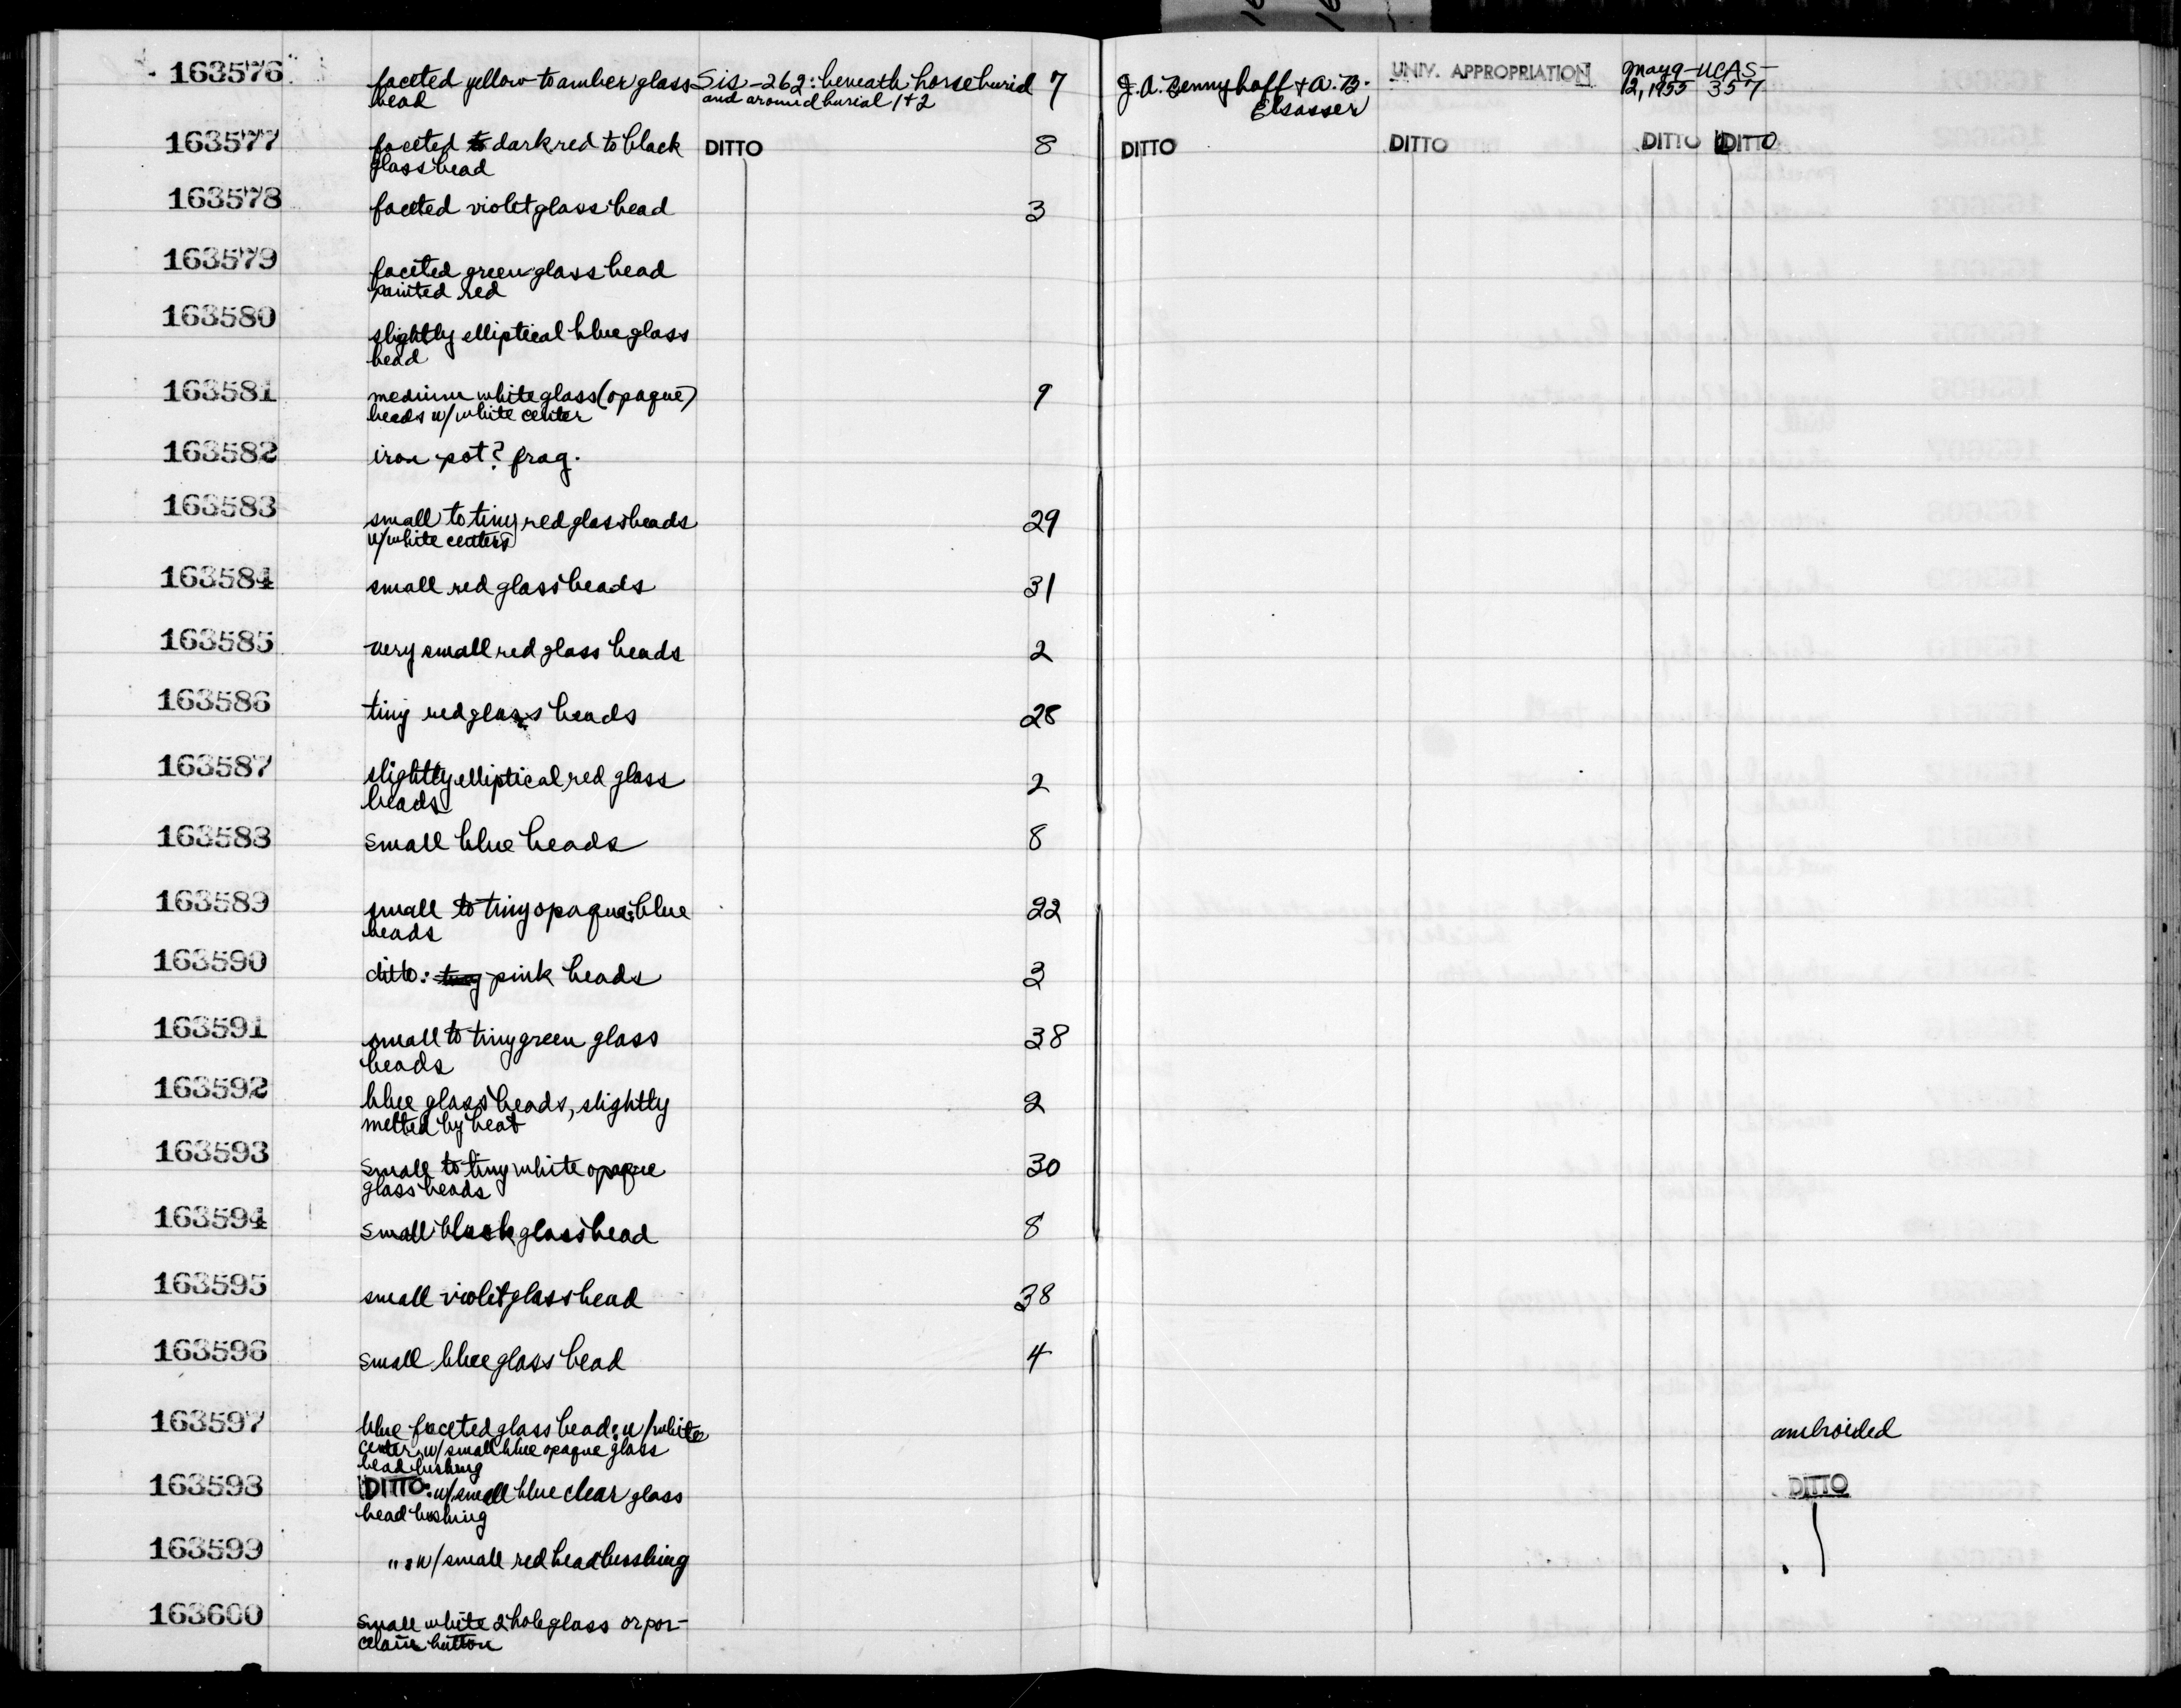 163576 faceted yellow to amber glass Sis-262: beneath horse burial 7 J.A. Bennyhoff + A.B. UNIV. APPROPRIATION May 9- UCAS-
bead and around burial 1+2 Elsasser 12, 1955 357
163577 faceted to dark red to black DITTO 8 DITTO DITTO DITTO DITTO
glass bead
163578 faceted violet glass bead 3
163579 faceted green glass bead
painted red
163580 slightly elliptical blue glass
bead
163581 medium white glass (opaque) 9
beads w/ white center
163582 iron pot? frag.
163583 small to tiny red glass beads 29
w/ white centers
163584 small red glass beads 31
163585 very small red glass beads 2
163586 tiny red glass beads 28
163587 slightly elliptical red glass 2
beads
163588 small blue beads 8
163589 small to tiny opaque blue 22
beads
163590 ditto: tiny pink beads 3
163591 small to tiny green glass 38
beads
163592 blue glass beads, slightly 2
melted by heat
163593 small to tiny white opaque 30
glass beads
163594 small black glass bead 8
163595 small violet glass bead 38
163596 small blue glass bead 4
163597 blue faceted glass bead: w/ white
center, w/ small blue opaque glass
bead bushing
163598 DITTO: w/ small blue clear glass DITTO
bead bushing
163599 ": w/ small red bead bushing
163600 small white 2 hole glass or por-
celain button